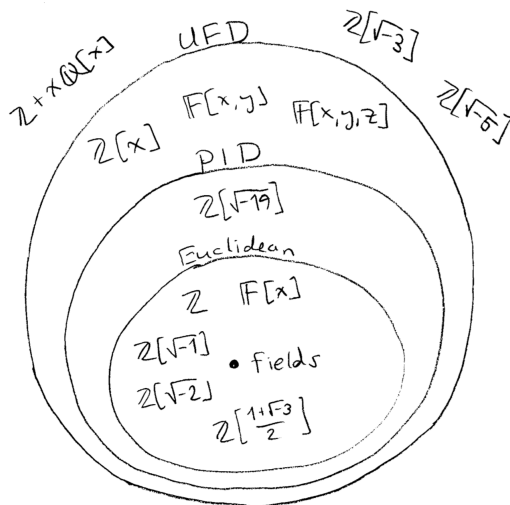 ℤ+xℚ[x]
UFD
ℤ[√-3]
ℤ[√-5]
ℤ[x]
𝔽[x,y]
𝔽[x,y,z]
PID
ℤ[√-19]
Euclidean
ℤ 𝔽[x]
ℤ[√-1]
• fields
ℤ[√-2]
ℤ[(1+√-3)/2]